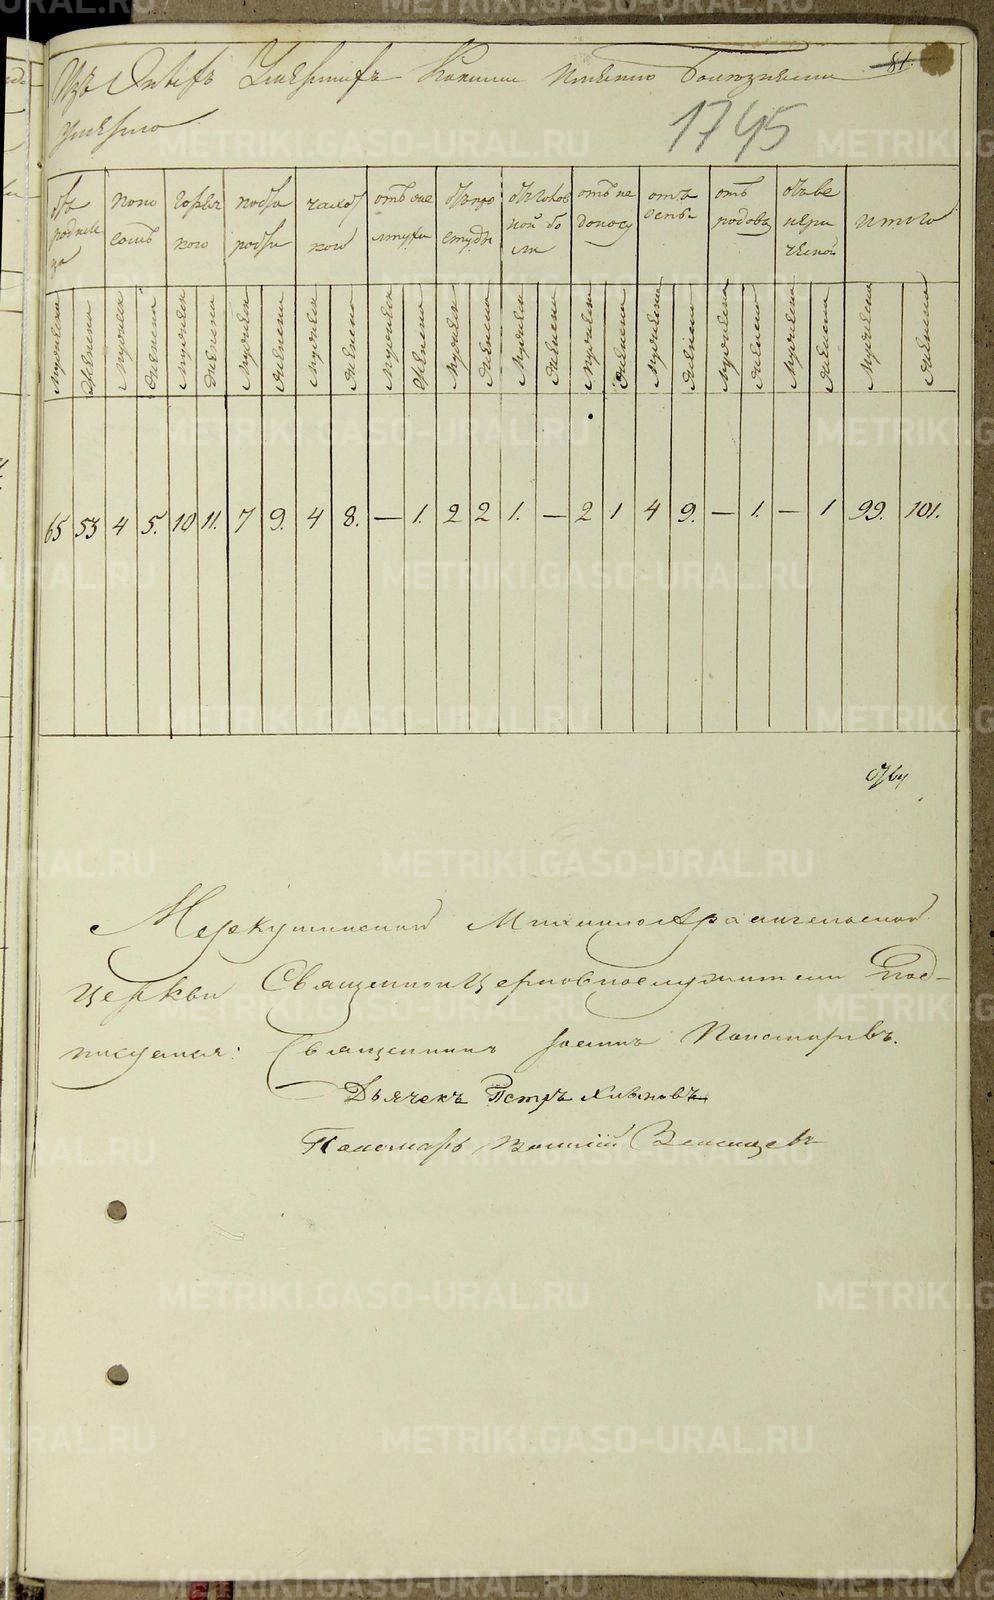 Изъ Оныхъ Умершихъ Какими имянно Болезньми 81.
умерло
1745
отъ родимца поносомъ горячкою чахоткою отъ простуды отъ головной боли отъ недоносу отъ оспы отъ родовъ отъ венерической итого
мужеска женска мужеска женска мужеска женска мужеска женска мужеска женска мужеска женска мужеска женска мужеска женска мужеска женска мужеска женска мужеска женска мужеска женска мужеска женска
65 53 4 5. 10 11. 7 9. 4 8. — 1. 2 2 1. — 2 1 4 9. — 1. — 1 99. 101.
Меркушинской Михаило Архангельской
церкви Священноицерковнослужители Под-
писуемся: Священникъ Иоаннъ
Дьячекъ Петръ
Пономарь
METRIKI.GASO-URAL.RU